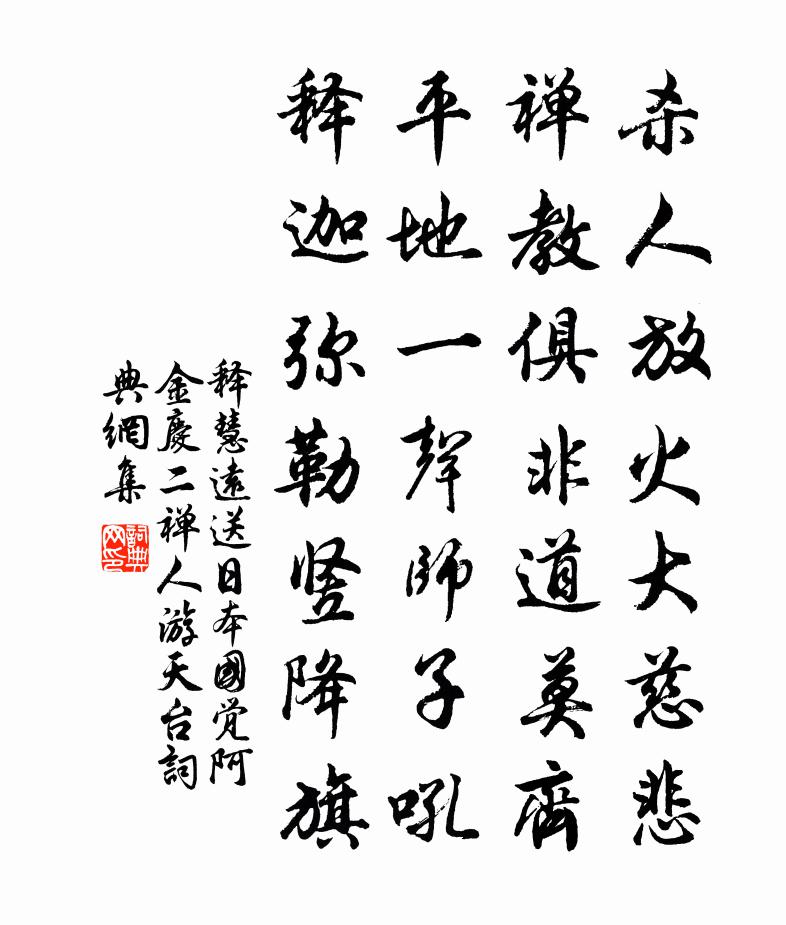 杀人放火大慈悲
禅教俱非道莫齊
平地一聲師子吼
释迦弥勒竖降旗
释慧遠送日本國觉阿
金慶二禅人游天台詞
典網集
詞典
网印